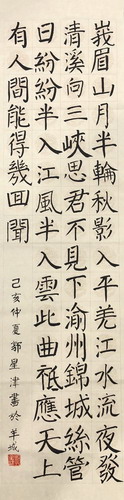 峩眉山月半輪秋影入平羌江水流夜發
清溪向三峽思君不見下渝州錦城絲管
日紛紛半入江風半入雲此曲祗應天上
有人間能得幾回聞
己亥仲夏星津書於羊城